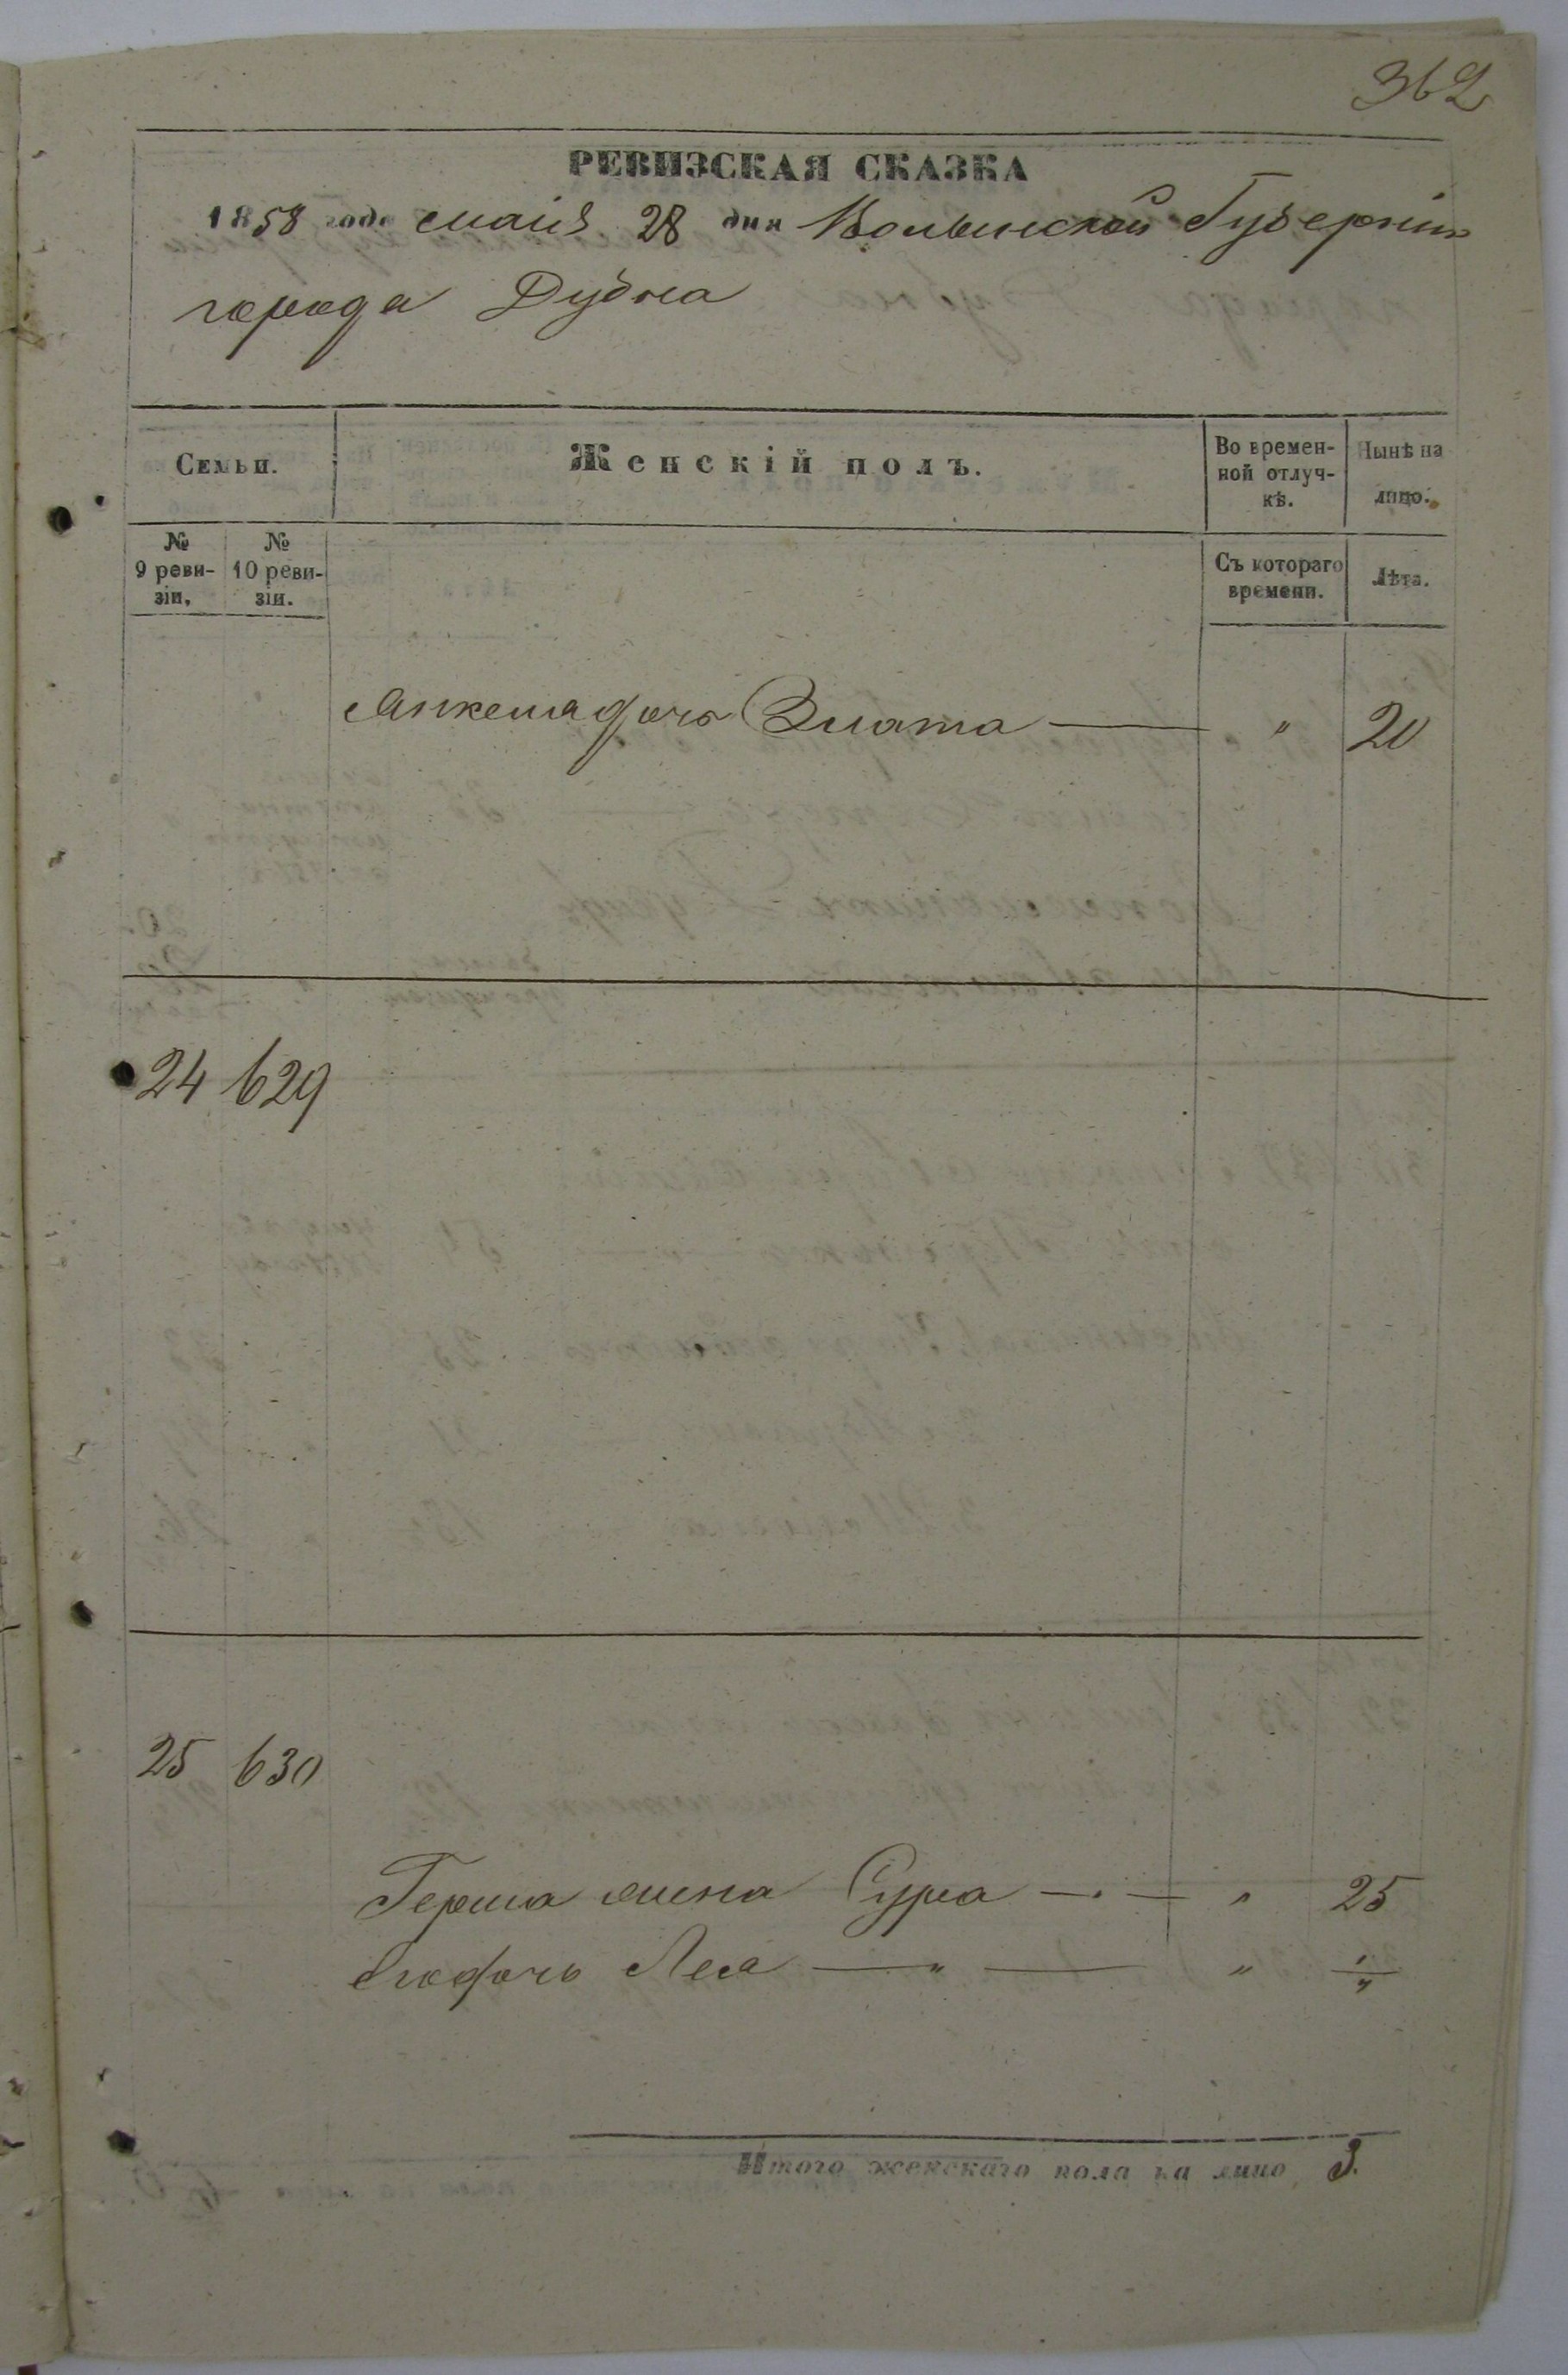 362
РЕВИЗСКАЯ СКАЗКА
1858 года маія 28 дня Волынской Губерніи
города Дубна
Семьи.
Женскій полъ.
Во времен-
ной отлуч-
кѣ.
Нынѣ на
лицо.
№
9 реви-
зіи.
№
10 реви-
зіи.
Съ котораго
времени.
Лѣта.
дочь Злата — " 20
24 629
25 630
Герша жена Сура — " 25
его дочь Лея — " — "
Итого женскаго пола на лицо 3.